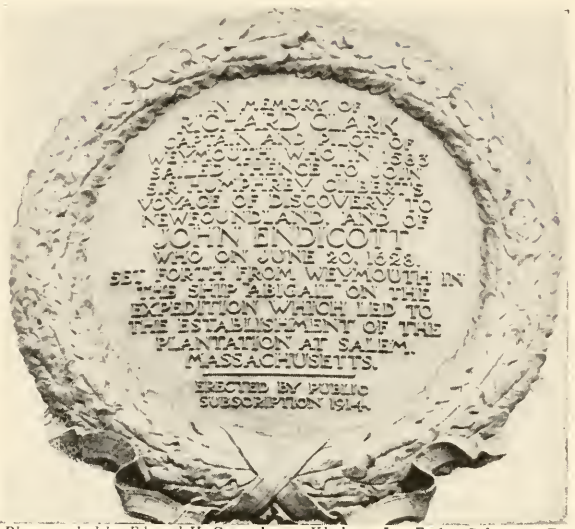 IN MEMORY OF
RICHARD CLARK
CAPTAIN AND PILOT OF
WEYMOUTH, WHO IN 1583
SAILED THENCE TO JOIN
SIR HUMPHREY GILBERT'S
VOYAGE OF DISCOVERY TO
NEWFOUNDLAND, AND OF
JOHN ENDICOTT
WHO ON JUNE 20, 1628,
SET FORTH FROM WEYMOUTH IN
THE SHIP ABIGAIL ON THE
EXPEDITION WHICH LED TO
THE ESTABLISHMENT OF THE
PLANTATION AT SALEM,
MASSACHUSETTS.
ERECTED BY PUBLIC
SUBSCRIPTION 1914.